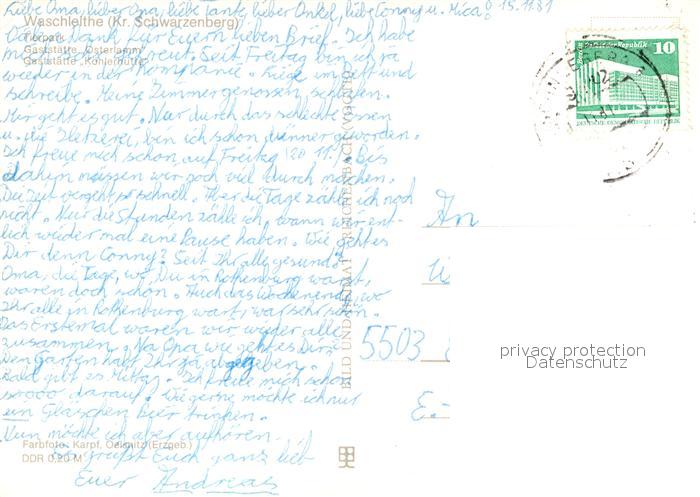 Liebe Oma, lieber Opa, liebe Tante, lieber Onkel, liebe Conny u. Mica! 15.11.81
Waschleithe (Kr. Schwarzenberg)
Tierpark
Gaststätte "Osterlamm"
Gaststätte "Köhlerhütte"
Vielen Dank für Euern lieben Brief. Ich habe
mich gefreut. Seit Freitag bin ich ja
wieder in der Kompanie. Liege im Bett und
schreibe. Meine Zimmergenossen, schlafen.
Mir geht es gut. Nur durch das schlechte Essen
u. die Hetzerei, bin ich schon dünner geworden.
Ich freue mich schon, auf Freitag (20.11.). Bis
dahin müssen wir noch viel durch machen.
Die Zeit vergeht so schnell. Aber die Tage zähle ich noch
nicht. Nur die Stunden zähle ich, wann wir ent-
lich wieder mal eine Pause haben. Wie geht es
Dir denn Conny? Seit Ihr alle gesund?
Oma, die Tage, wo Du in Rothenburg warst,
waren doch schön. Auch das Wochenende, wo
Ihr alle in Rothenburg wart, war sehr schön.
Das Erstemal waren wir wieder alle
zusammen. Na Opa wie geht es Dir?
Den Garten habt Ihr ja abgegeben.
Bald gibt es Mittag. Ich freue mich schon
soooo darauf. Wie gerne möchte ich nur
ein Gläschen Bier trinken.
Nun möchte ich aber aufhören.
Es grüßt Euch ganz lieb
Euer Andreas
Farbfoto: Karpf, Oelsnitz (Erzgeb.)
DDR 0,20 M
BILD UND HEIMAT REICHENBACH (VOGTL)
An
5503
E.-
10
DEUTSCHE DEMOKRATISCHE REPUBLIK
privacy protection
Datenschutz